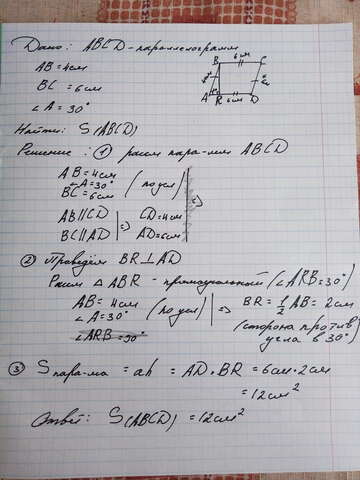 Дано: ABCD - параллелограмм
AB = 4см
BC = 6см
∠A = 30°
B 6см C
A R 6см D
Найти: S(ABCD)
Решение: ① рассм пара-мм ABCD
AB = 4см
∠A = 30° (по усл)
BC = 6см
AB||CD => CD = 4см
BC||AD AD = 6см
② Проведём BR⊥AD
Рассм △ABR - прямоугольный (∠ARB = 30°)
AB = 4см (по усл) => BR = 1/2 AB = 2см
∠A = 30° (сторона против
∠ARB = 90° угла в 30°)
③ S пара-ма = ah = AD · BR = 6см · 2см
= 12см²
Ответ: S(ABCD) = 12см²